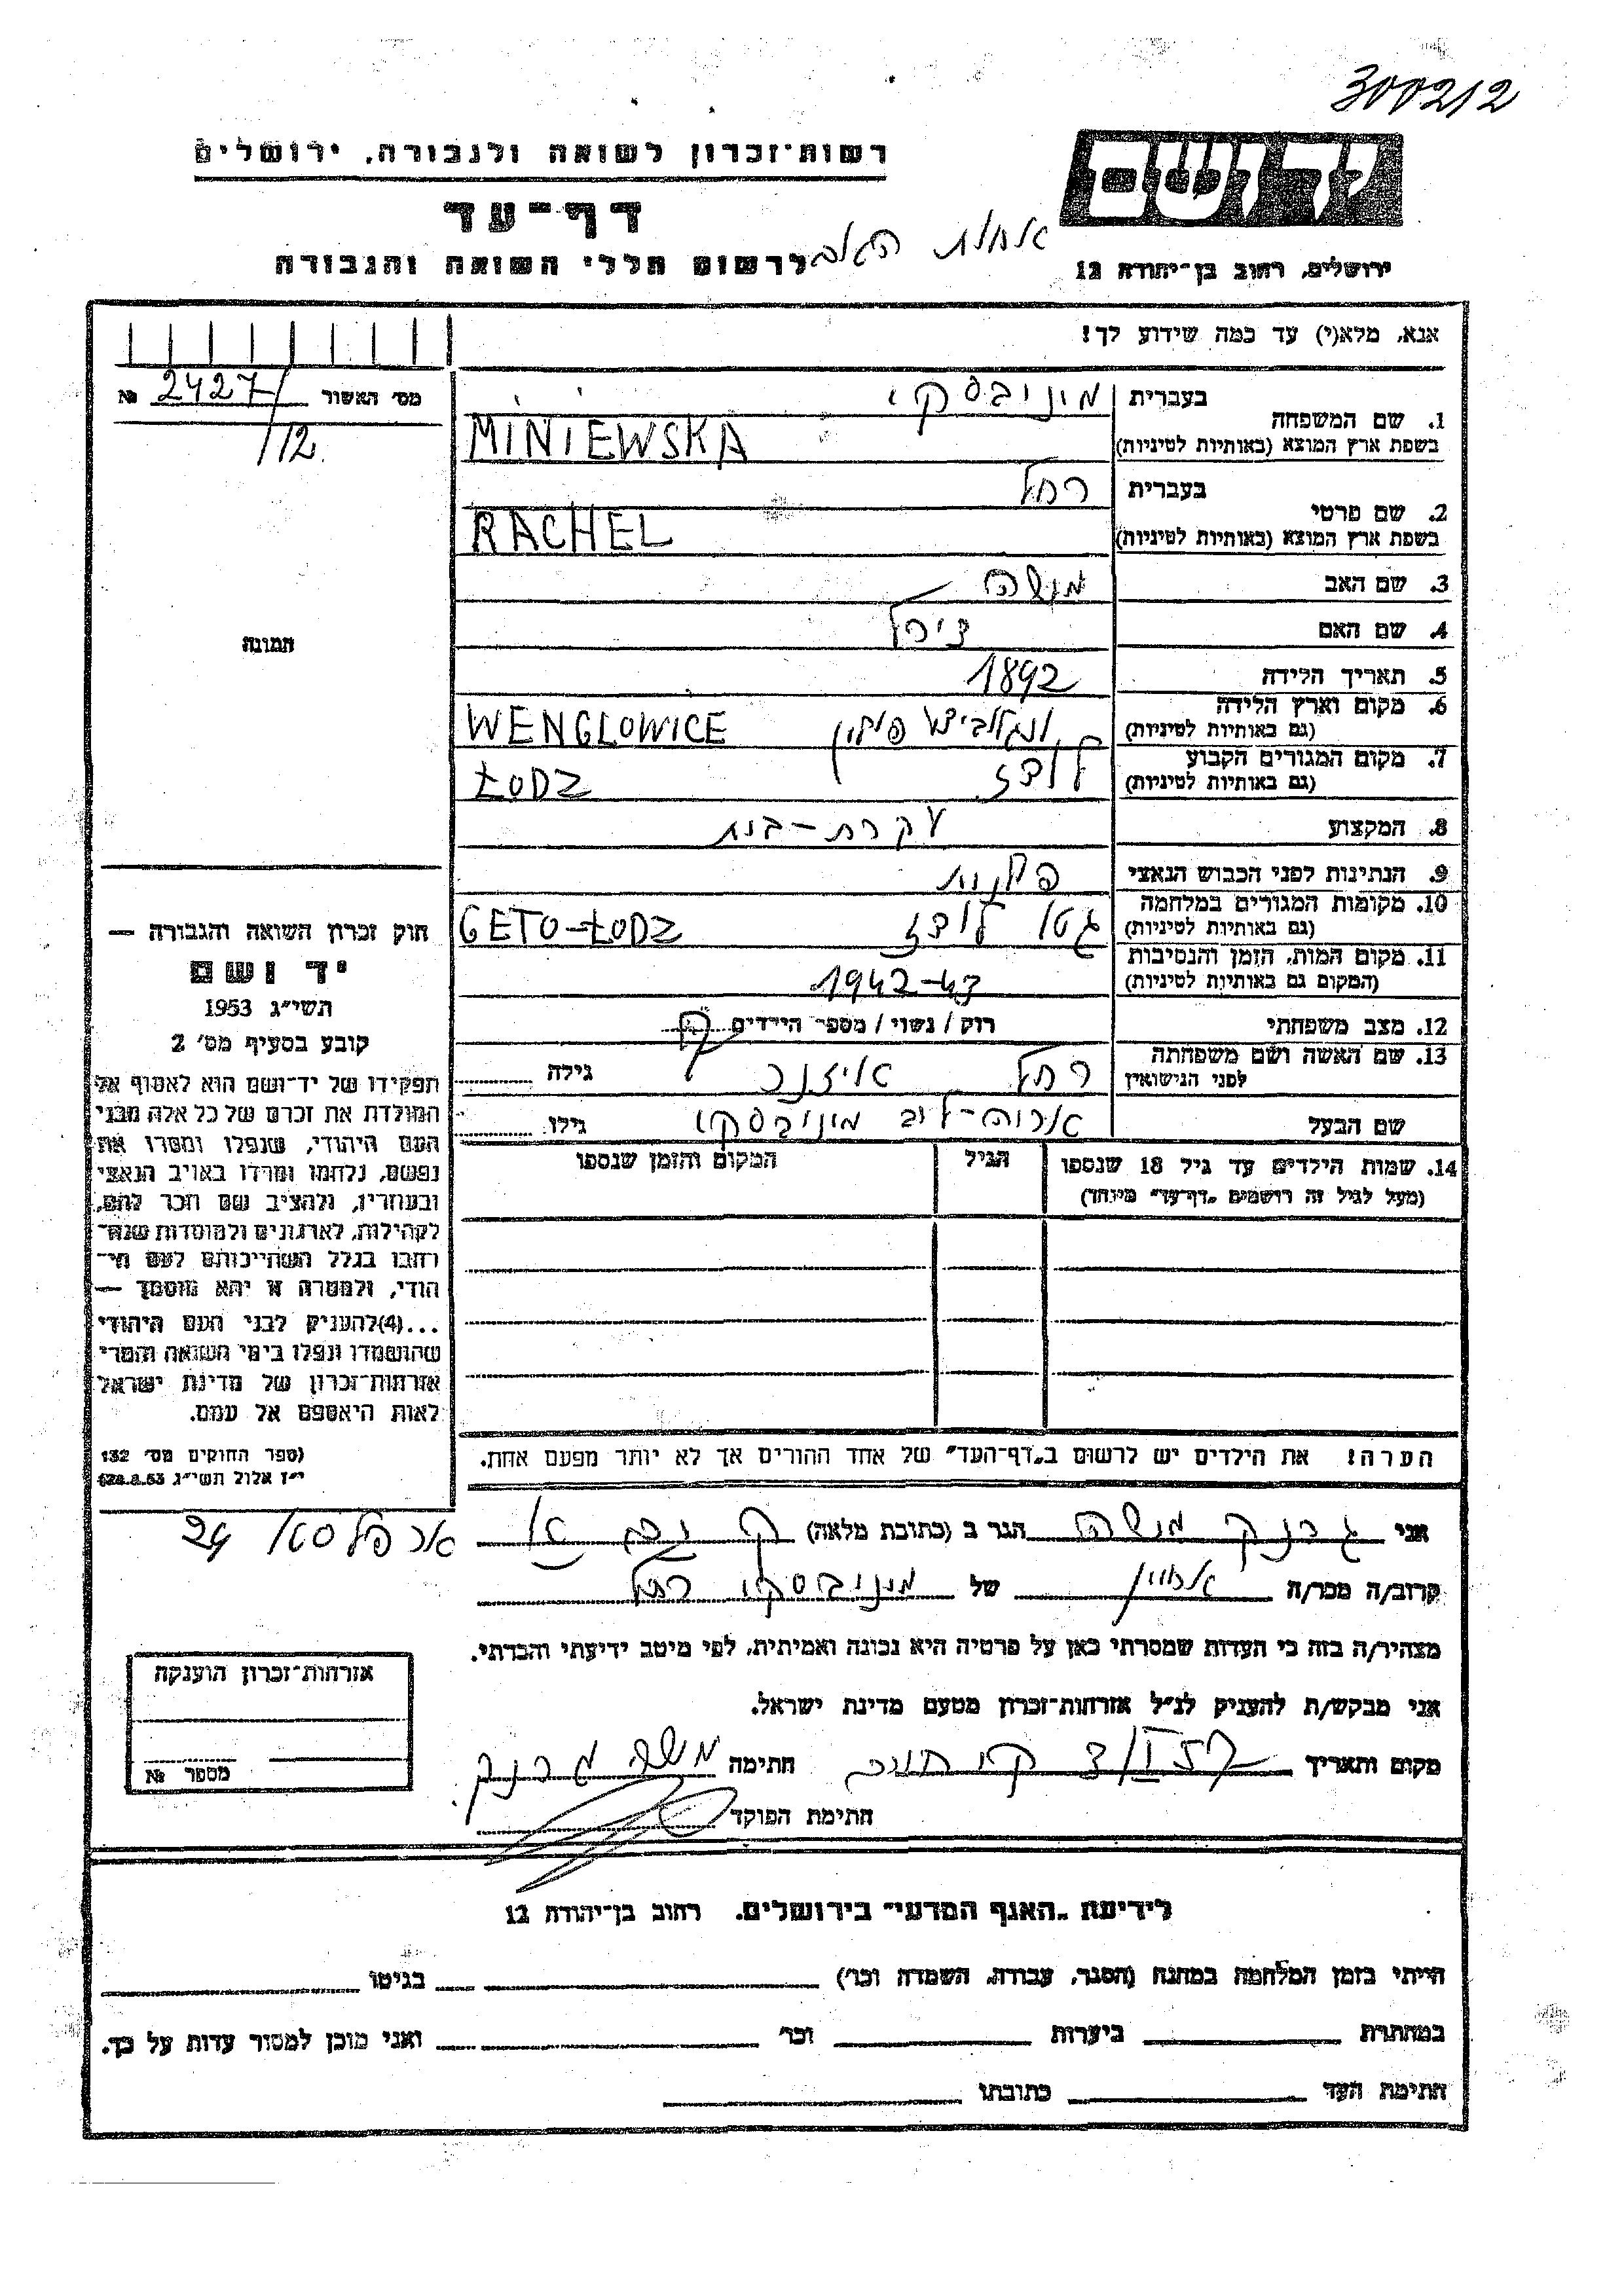 300212
רשות־זכרון לשואה ולגבורה, ירושלים
דף־עד
לרשום חללי השואה והגבורה
ירושלים, רחוב בן־יהודה 12
אנא, מלא(י) עד כמה שידוע לך!
מס׳ האשור 2427/ №
/12
1. שם המשפחה
בעברית מיניבסקי
בשפת ארץ המוצא (באותיות לטיניות) MINIEWSKA
2. שם פרטי
בעברית רחל
בשפת ארץ המוצא (באותיות לטיניות) RACHEL
3. שם האב מנשה
4. שם האם צירל
5. תאריך הלידה 1892
6. מקום וארץ הלידה
(גם באותיות לטיניות) פולין WENGLOWICE
7. מקום המגורים הקבוע
(גם באותיות לטיניות) לודז ŁODZ
8. המקצוע עקרת־בית
9. הנתינות לפני הכבוש הנאצי פולנית
10. מקומות המגורים במלחמה
(גם באותיות לטיניות) גטו לודז GETO-ŁODZ
11. מקום המות, הזמן והנסיבות
(המקום גם באותיות לטיניות) 1942-43
12. מצב משפחתי רוק / נשוי / מספר הילדים
13. שם האשה ושם משפחתה
לפני הנישואין רחל אייזנר גילה
שם הבעל מיניבסקי גילו
14. שמות הילדים עד גיל 18 שנספו
(מעל לגיל זה רושמים „דף־עד״ מיוחד)
הגיל
המקום והזמן שנספו
הערה! את הילדים יש לרשום ב„דף־העד״ של אחד ההורים אך לא יותר מפעם אחת.
התמונה
חוק זכרון השואה והגבורה —
יד ושם
תשי״ג 1953
קובע בסעיף מס׳ 2
תפקידו של יד־ושם הוא לאסוף אל
המולדת את זכרם של כל אלה מבני
העם היהודי, שנפלו ומסרו את
נפשם, נלחמו ומרדו באויב הנאצי
ובעוזריו, ולהציב שם וזכר להם,
לקהילות, לארגונים ולמוסדות שנח־
רבו בגלל השתייכותם לעם הי־
הודי, ולמטרה זו יהא מוסמך —
...(4)להעניק לבני העם היהודי
שהושמדו ונפלו בימי השואה והמרי
אזרחות־זכרון של מדינת ישראל
לאות היאספם אל עמם.
(ספר החוקים מס׳ 132
י״ז אלול תשי״ג 28.8.53)
אני מנשה הגר ב (כתובת מלאה) 24
קרוב/ה מכר/ה אחיין של מיניבסקי רחל
מצהיר/ה בזה כי העדות שמסרתי כאן על פרטיה היא נכונה ואמיתית, לפי מיטב ידיעתי והכרתי.
אני מבקש/ת להעניק לנ״ל אזרחות־זכרון מטעם מדינת ישראל.
מקום ותאריך חתימה
חתימת הפוקד
אזרחות־זכרון הוענקה
מספר №
לידיעת „האגף המדעי״ בירושלים. רחוב בן־יהודה 12
הייתי בזמן המלחמה במחנה (הסגר, עבודה, השמדה וכו׳) בגיטו
במחתרת ביערות וכו׳ ואני מוכן למסור עדות על כך.
חתימת העד כתובתו